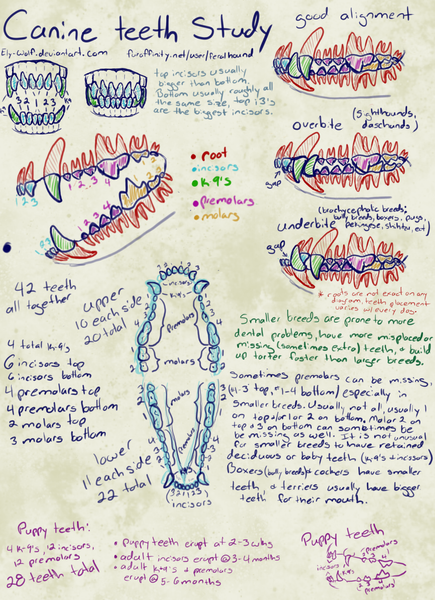 Canine teeth Study
Ely-Wolf.deviantart.com
furaffinity.net/user/feralhound
good alignment
top incisors usually
bigger than bottom.
Bottom usually roughly all
the same size, top i3's
are the biggest incisors.
3 2 1 1 2 3
K9
• root
• incisors
• K-9's
• premolars
• molars
1 2 3
1 2 3 4
1 2 3 4
overbite (sighthounds,
daschunds)
gap
(brachycephalic breeds;
bully breeds, boxers, pugs,
underbite
gap
* roots are not exact on any
diagram, teeth placement
varies w/ every dog.
42 teeth
all together
4 total K-9's
6 incisors top
6 incisors bottom
4 premolars top
4 premolars bottom
2 molars top
3 molars bottom
upper
10 each side
20 total
incisors
K-9's
Premolars
molars
molars
Premolars
K9's
3 2 1 1 2 3
incisors
lower
11 each side
22 total
Smaller breeds are prone to more
dental problems, have more misplaced or
missing (sometimes extra) teeth, & build
up tarter faster than larger breeds.
Sometimes premolars can be missing,
(#1-3 top, #1-4 bottom) especially in
smaller breeds. Usually not all, usually 1
on top &/or 1 or 2 on bottom. Molar 2 on
top & 3 on bottom can sometimes be
be missing as well. It is not unusual
for smaller breeds to have retained
deciduous or baby teeth (K-9's + incisors)
Boxers (bully breeds) & cockers have smaller
teeth & terriers usually have bigger
teeth for their mouth.
Puppy teeth:
4 K-9's, 12 incisors,
12 premolars
28 teeth total
• puppy teeth erupt at 2-3 wks
• adult incisors erupt @ 3-4 months
• adult K-9's + premolars
erupt @ 5-6 months
Puppy teeth
premolars
incisors
K-9's
premolars